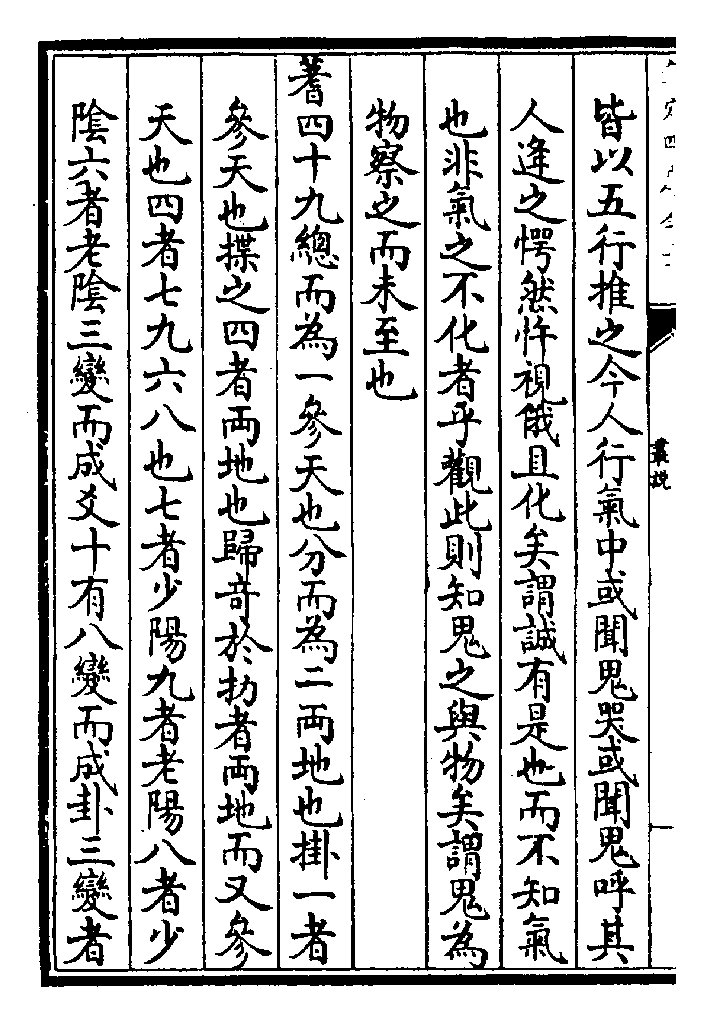 皆以五行推之今人行氣中或聞鬼哭或聞鬼呼其
人逢之愕然忤視俄且化矣謂誠有是也而不知氣
也非氣之不化者乎觀此則知鬼之與物矣謂鬼為
物察之而未至也
蓍四十九總而為一參天也分而為二兩地也掛一者
參天也揲之四者兩地也歸奇於扐者兩地而又參
天也四者七九六八也七者少陽九者老陽八者少
陰六者老陰三變而成爻十有八變而成卦三變者
叢說